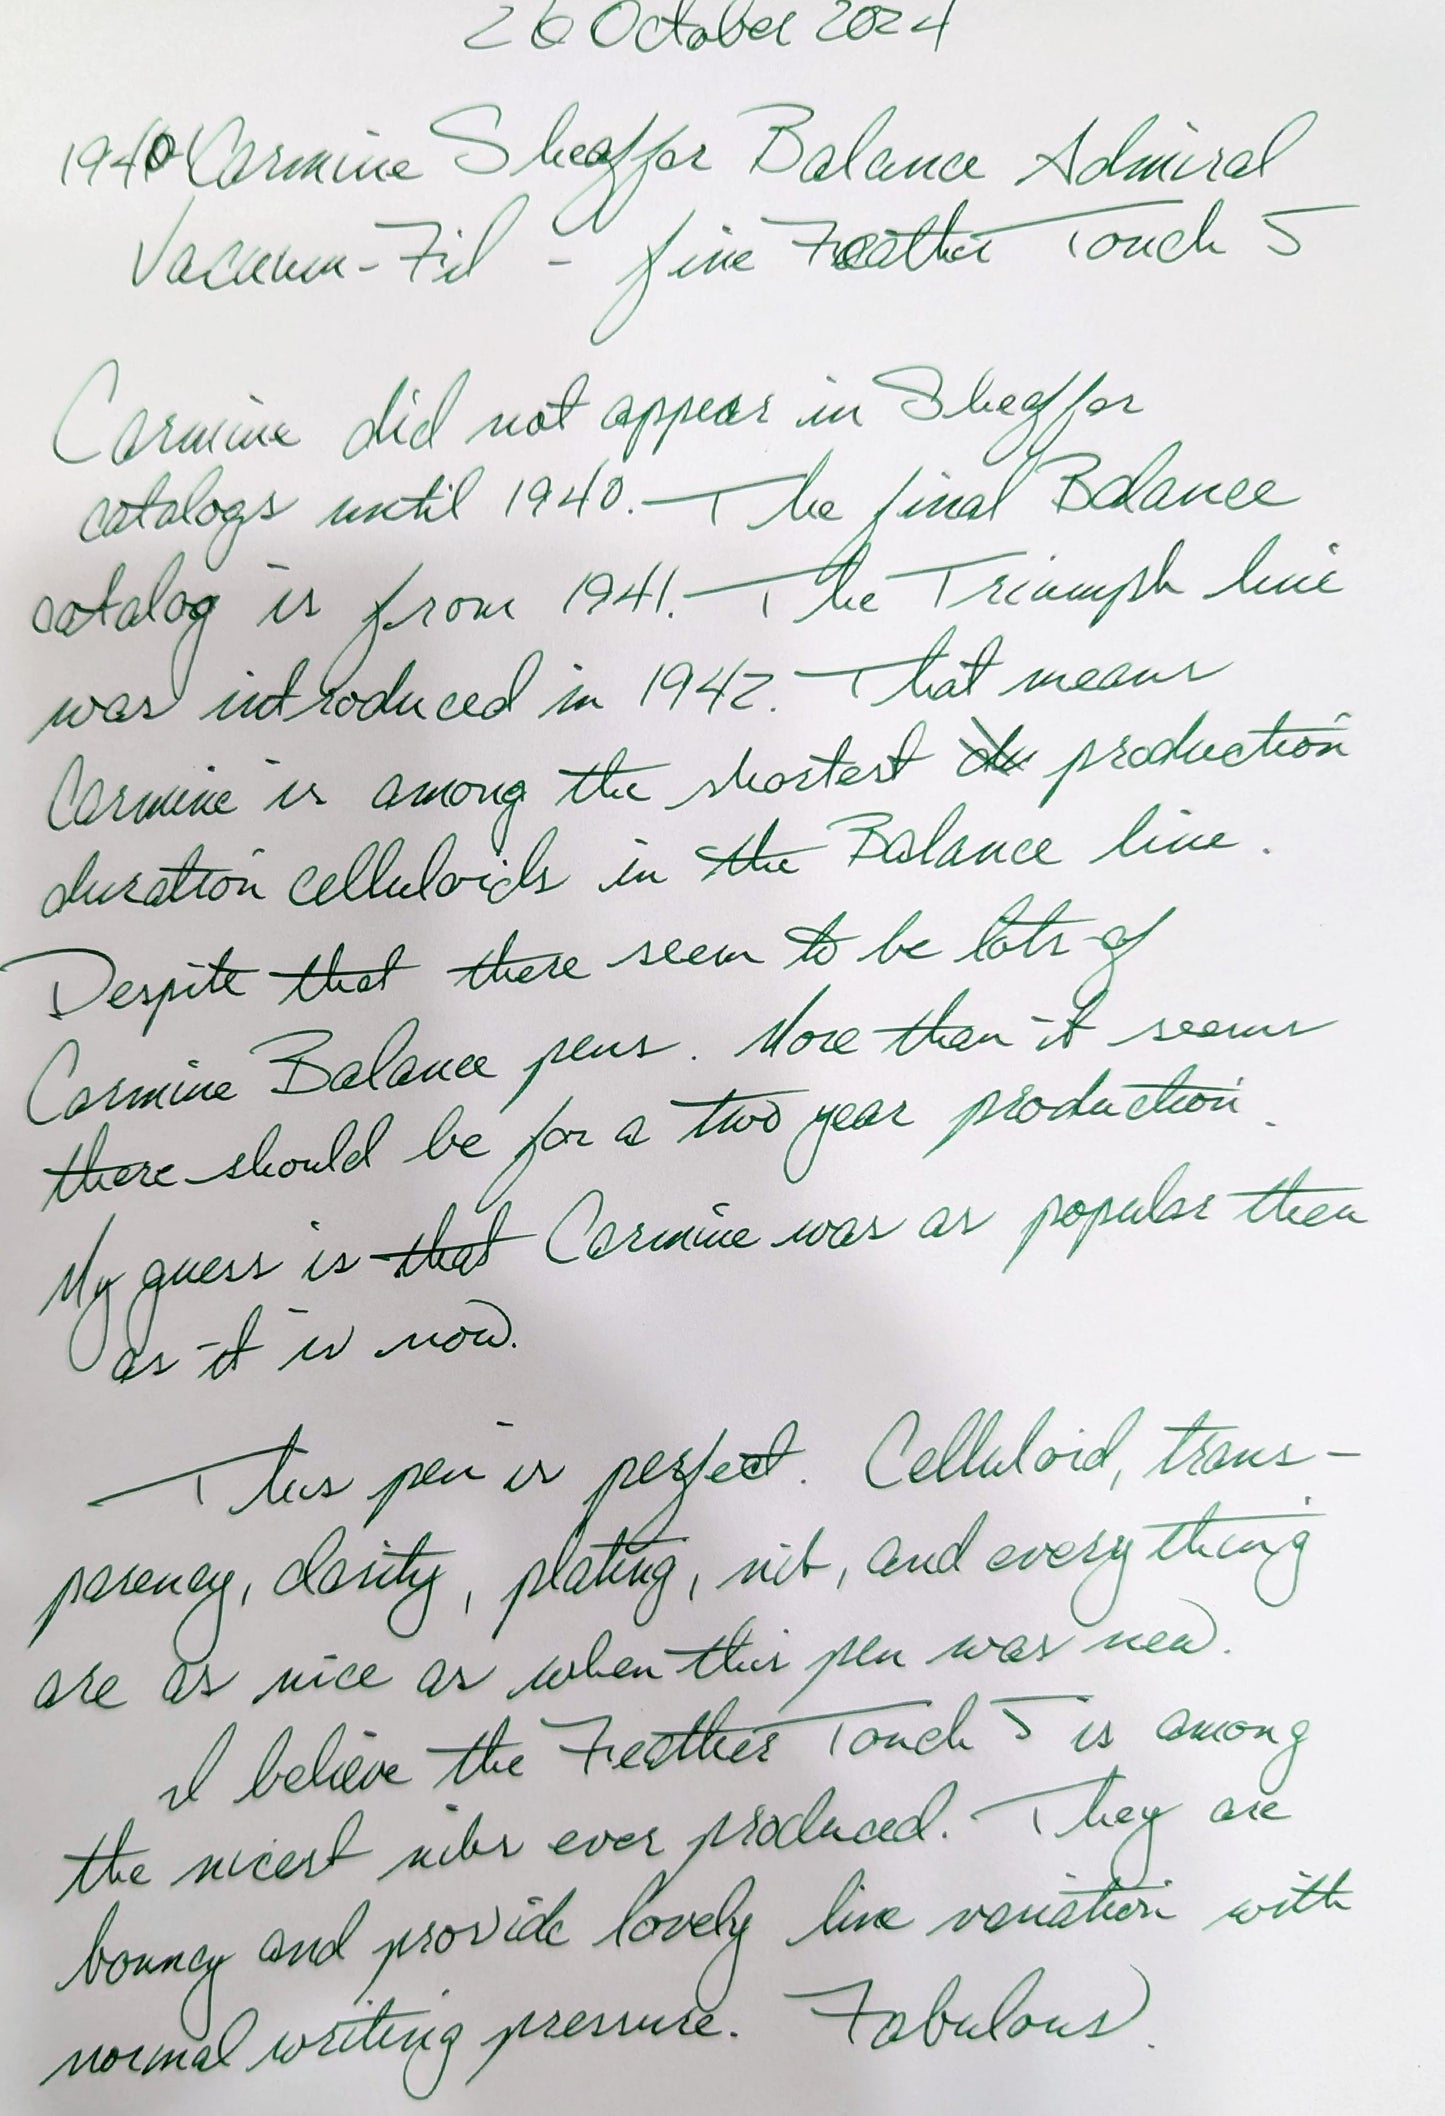 26 October 2024
1940 Carmine Sheaffer Balance Admiral
Vacuum-Fil - fine Feather Touch 5
Carmine did not appear in Sheaffer
catalogs until 1940. The final Balance
catalog is from 1941. The Triumph line
was introduced in 1942. That means
Carmine is among the shortest production
duration celluloids in the Balance line.
Despite that there seem to be lots of
Carmine Balance pens. More than it seems
there should be for a two year production.
My guess is that Carmine was as popular then
as it is now.
This pen is perfect. Celluloid, trans-
parency, clarity, plating, nib, and everything
are as nice as when this pen was new.
I believe the Feather Touch 5 is among
the nicest nibs ever produced. They are
bouncy and provide lovely line variation with
normal writing pressure. Fabulous.